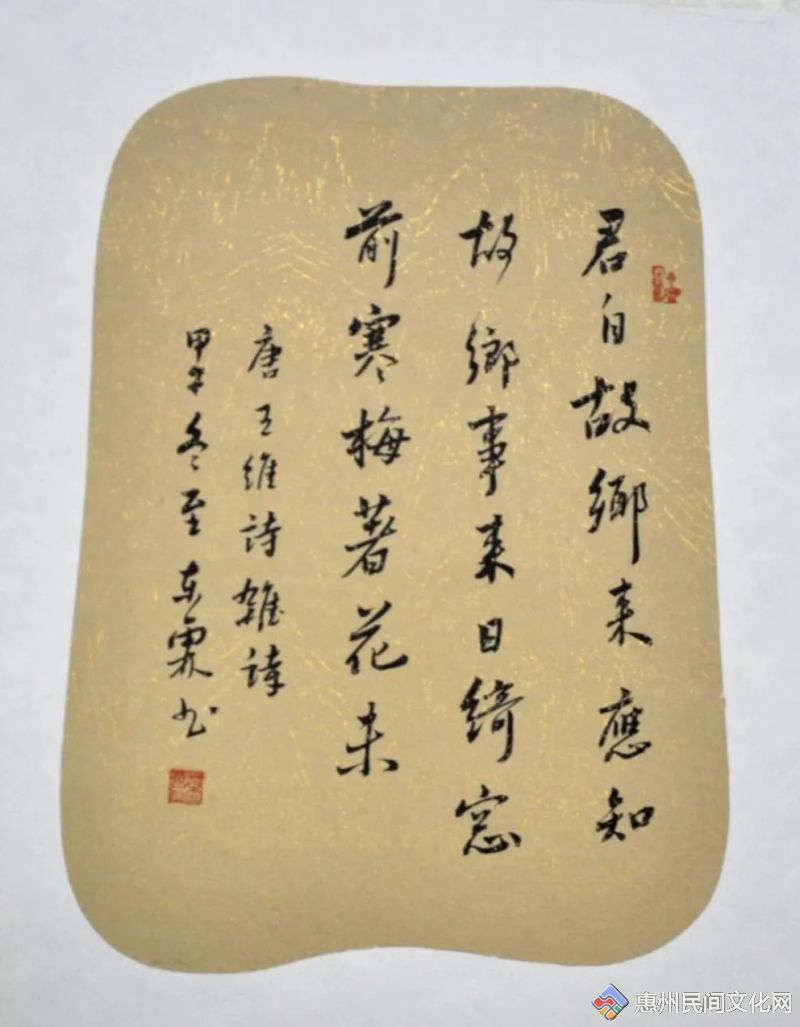 君自故鄉来應知
故鄉事来日綺窓
前寒梅著花未
唐王維詩雜詩
甲午冬至东霖书
惠州民间文化网